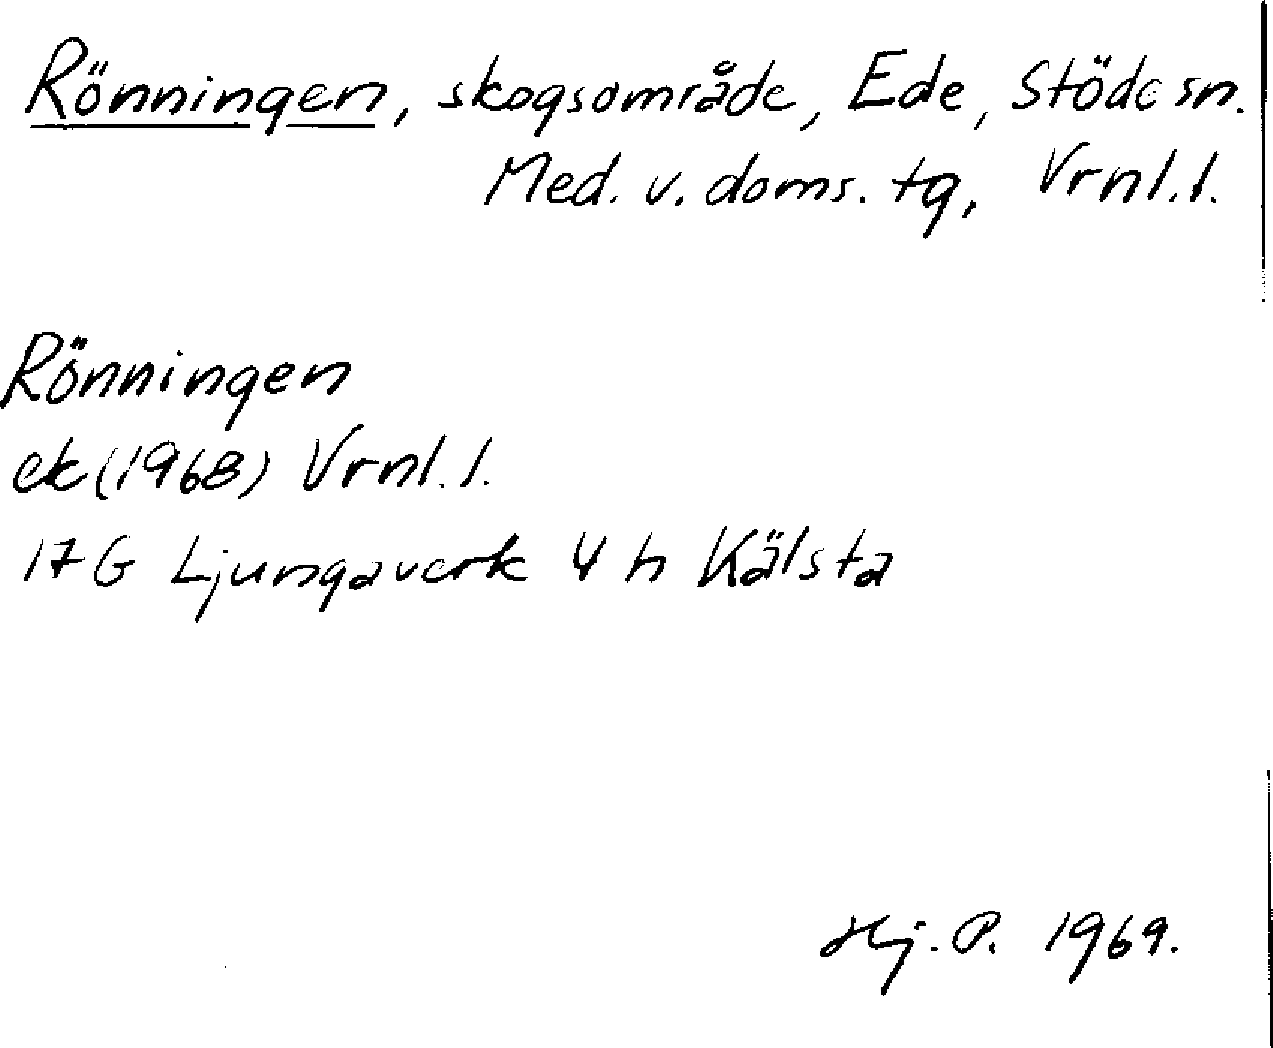 Rönningen, skogsområde, Ede, Stöde sn.
Med. v. doms. tg, Vrnl. l.
Rönningen
ek (1968) Vrnl. l.
17 G Ljungaverk 4 h Kälsta
Hj. P. 1969.